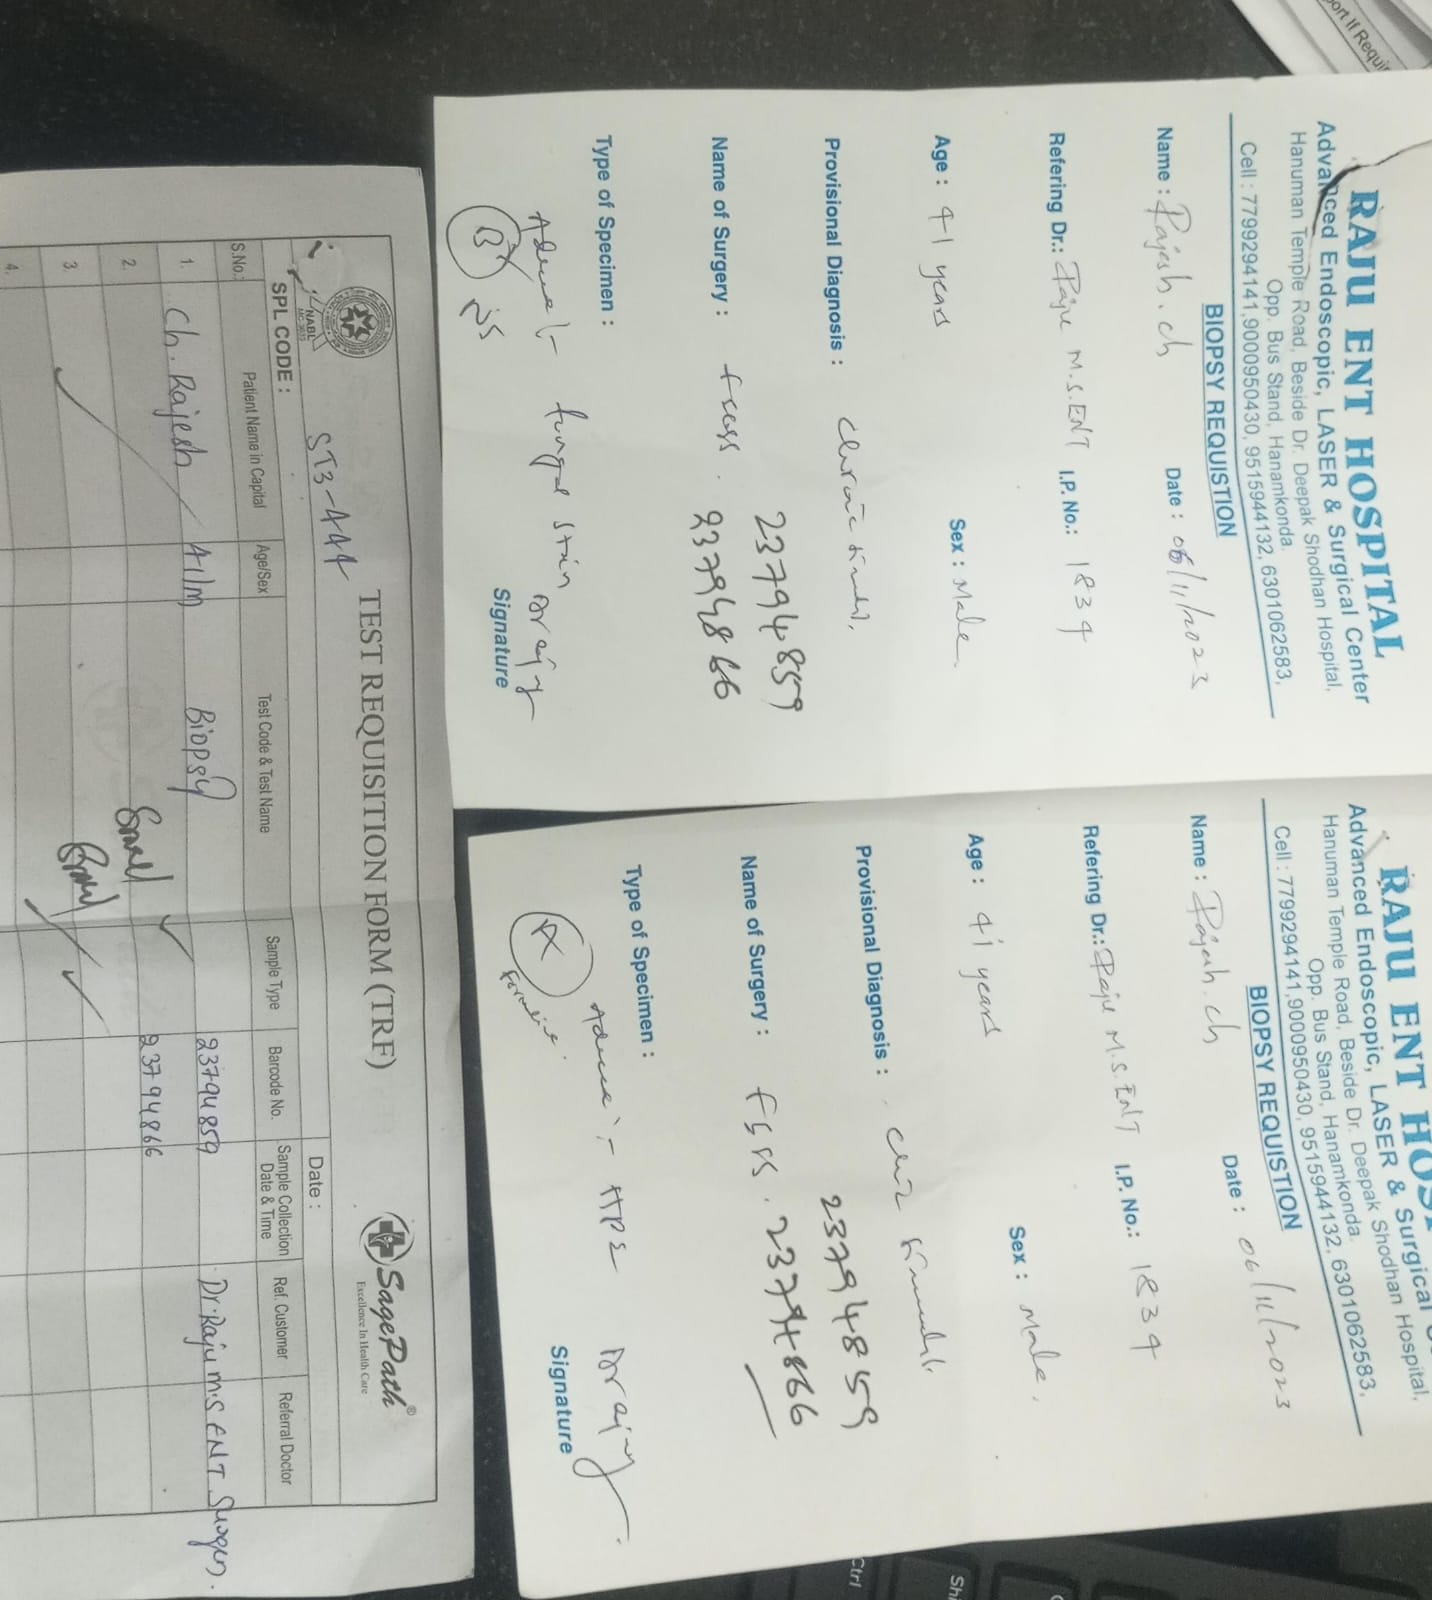 port If Requir
RAJU ENT HOSPITAL
Advanced Endoscopic, LASER & Surgical Center
Hanuman Temple Road, Beside Dr. Deepak Shodhan Hospital,
Opp. Bus Stand, Hanamkonda.
Cell : 7799294141,9000950430, 9515944132, 6301062583,
BIOPSY REQUISTION
Name : Rajesh.ch Date : 06/11/2023
Refering Dr.: Raju M.S.ENT I.P. No.: 1839
Age : 41 years Sex : Male.
Provisional Diagnosis : chronic
23794859
Name of Surgery : 23794866
Type of Specimen :
fungal stain
B
Signature
RAJU ENT HOSP
Advanced Endoscopic, LASER & Surgical
Hanuman Temple Road, Beside Dr. Deepak Shodhan Hospital,
Opp. Bus Stand, Hanamkonda.
Cell : 7799294141,9000950430, 9515944132, 6301062583,
BIOPSY REQUISTION
Name : Rajesh.ch Date : 06/11/2023
Refering Dr.: Raju M.S.ENT I.P. No.: 1839
Age : 41 years Sex : Male.
Provisional Diagnosis :
23794859
Name of Surgery : 23794866
Type of Specimen :
HPE
A
Signature
TEST REQUISITION FORM (TRF)
SagePath®
Excellence In Health Care
NABL
SPL CODE : ST3-444 Date :
S.No. Patient Name in Capital Age/Sex Test Code & Test Name Sample Type Barcode No. Sample Collection Date & Time Ref. Customer Referral Doctor
1. Ch. Rajesh 41/m Biopsy 23794859 Dr. Raju M.S ENT
2. 23794866
3.
4.
Ctrl
Shi